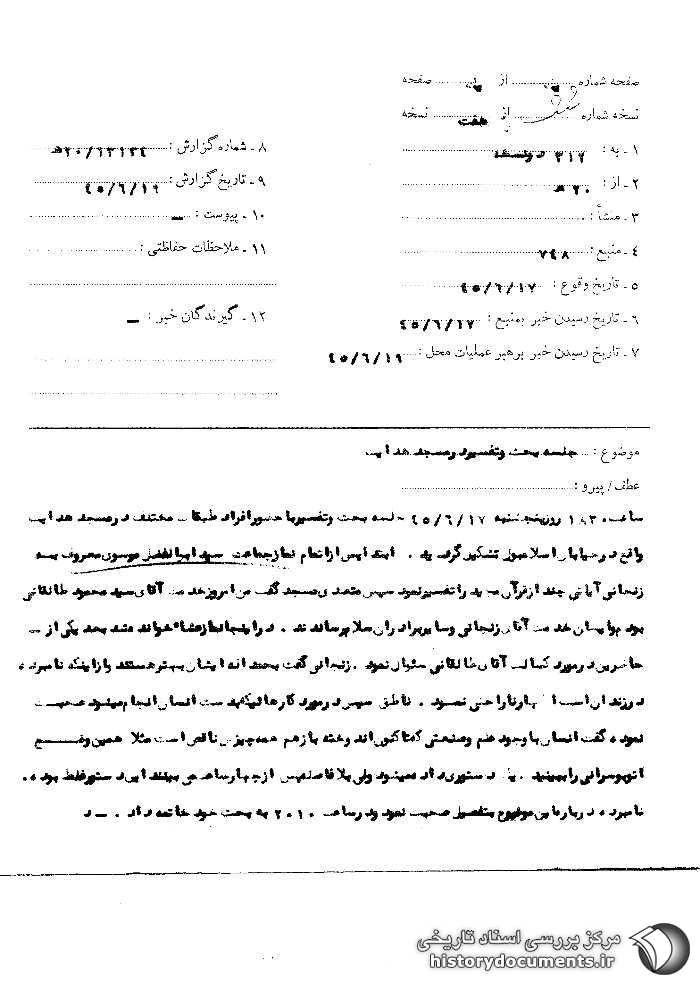 صفحه شماره یک از یک صفحه
نسخه شماره از هفت نسخه
۱ ـ به : ۳۱۲
۲ ـ از : ۲۰ هـ
۳ ـ منشأ :
۴ ـ منبع : ۷۴۸
۵ ـ تاریخ وقوع : ۴۵/۶/۱۷
۶ ـ تاریخ رسیدن خبر بمنبع : ۴۵/۶/۱۷
۷ ـ تاریخ رسیدن خبر برهبر عملیات محل : ۴۵/۶/۱۹
۸ ـ شماره گزارش : ۲۰/۱۳۱۳۴هـ
۹ ـ تاریخ گزارش : ۴۵/۶/۱۹
۱۰ ـ پیوست : ــ
۱۱ ـ ملاحظات حفاظتی :
۱۲ ـ گیرندگان خبر : ــ
موضوع : جلسه بحث وتفسیر در مسجد هدایت
عطف/ پیرو :
ساعت ۱۸۳۰ روز پنجشنبه ۴۵/۶/۱۷ جلسه بحث وتفسیر با حضور افراد طبقات مختلف در مسجد هدایت
واقع در خیابان اسلامبول تشکیل گردید . ابتدا پس از اتمام نماز جماعت سید ابوالفضل موسوی معروف به
زنجانی آیاتی چند از قرآن مجید را تفسیر نمود سپس متصدی مسجد گفت من امروز خدمت آقای سید محمود طالقانی
بودم ایشان خدمت آقای زنجانی وسایر برادران سلام رساندند . در اینجا نماز عشاء خوانده شد بعد یکی از ــ
حاضرین در مورد کسالت آقای طالقانی سئوال نمود . زنجانی گفت بحمدالله ایشان بهتر هستند واز اینکه نامبرده
در زندان است ناراحتی نمود . ناطق سپس در مورد کارهائیکه بدست انسان انجام میشود صحبت
نموده گفت انسان با وجود علم وصنعتی که تاکنون اندوخته باز هم همه چیزش ناقص است مثلا همین وضع
اتوبوسرانی را ببینید . یک دستوری داده میشود ولی بلافاصله پس از چهار ساعت می بینند این دستور غلط بوده .
نامبرده درباره این موضوع بتفصیل صحبت نمود ودر ساعت ۲۰۱۰ به بحث خود خاتمه داد . ــ د
مرکز بررسی اسناد تاریخی
historydocuments.ir